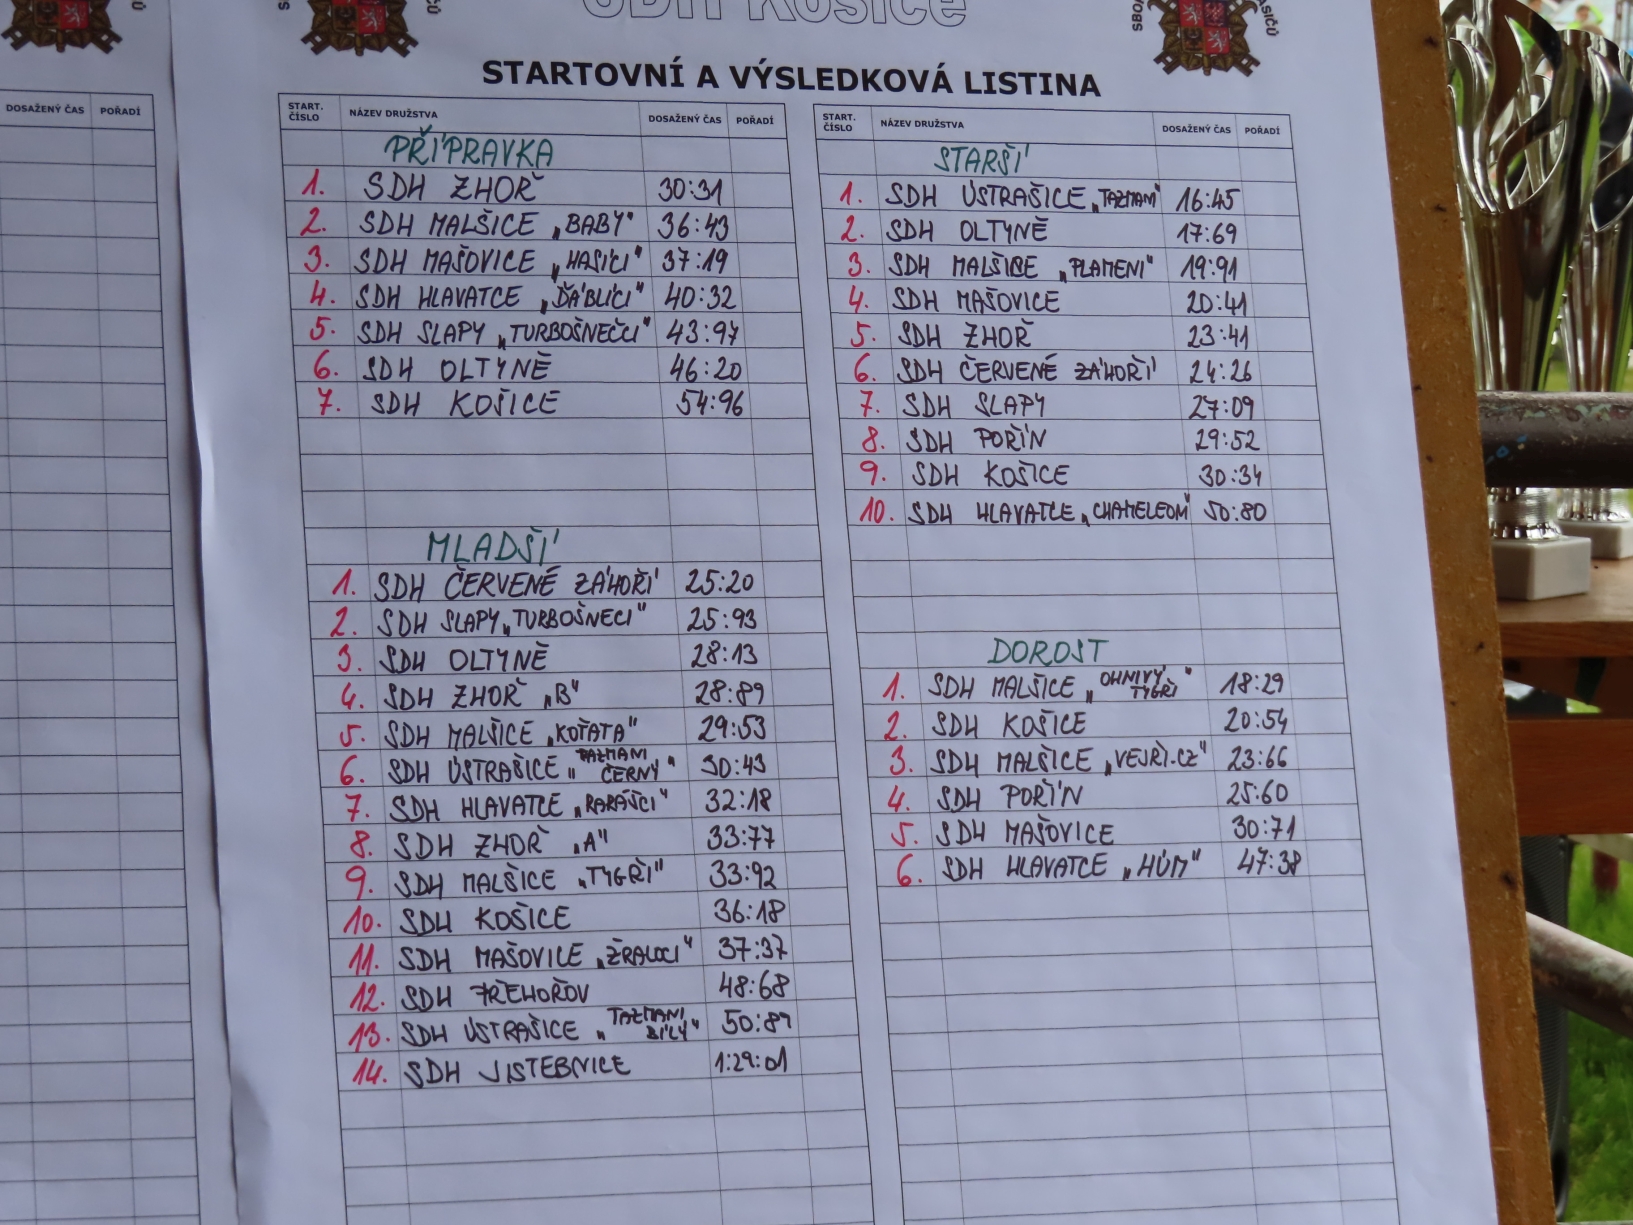 SDH Košice
STARTOVNÍ A VÝSLEDKOVÁ LISTINA
DOSAŽENÝ ČAS POŘADÍ
START. ČÍSLO NÁZEV DRUŽSTVA DOSAŽENÝ ČAS POŘADÍ
PŘÍPRAVKA
1. SDH ZHOŘ 30:31
2. SDH MALŠICE „BABY“ 36:43
3. SDH MAŠOVICE „HASIČI“ 37:19
4. SDH HLAVATCE „ĎÁBLÍCI“ 40:32
5. SDH SLAPY „TURBOŠNEČCI“ 43:97
6. SDH OLTYNĚ 46:20
7. SDH KOŠICE 54:96
MLADŠÍ
1. SDH ČERVENÉ ZÁHOŘÍ 25:20
2. SDH SLAPY „TURBOŠNECI“ 25:93
3. SDH OLTYNĚ 28:13
4. SDH ZHOŘ „B“ 28:89
5. SDH MALŠICE „KOŤATA“ 29:53
6. SDH ÚSTRAŠICE „TAZMANI ČERNÝ“ 30:43
7. SDH HLAVATCE „RARÁŠCI“ 32:18
8. SDH ZHOŘ „A“ 33:77
9. SDH MALŠICE „TYGŘI“ 33:92
10. SDH KOŠICE 36:18
11. SDH MAŠOVICE „ŽRALOCI“ 37:37
12. SDH PŘEHOŘOV 48:68
13. SDH ÚSTRAŠICE „TAZMANI BÍLÝ“ 50:87
14. SDH JISTEBNICE 1:29:01
START. ČÍSLO NÁZEV DRUŽSTVA DOSAŽENÝ ČAS POŘADÍ
STARŠÍ
1. SDH ÚSTRAŠICE „TAZMANI“ 16:45
2. SDH OLTYNĚ 17:69
3. SDH MALŠICE „PLAMENI“ 19:91
4. SDH MAŠOVICE 20:41
5. SDH ZHOŘ 23:41
6. SDH ČERVENÉ ZÁHOŘÍ 24:26
7. SDH SLAPY 27:09
8. SDH POŘÍN 29:52
9. SDH KOŠICE 30:34
10. SDH HLAVATCE „CHAMELEONI“ 50:80
DOROST
1. SDH MALŠICE „OHNIVÝ TYGŘI“ 18:29
2. SDH KOŠICE 20:54
3. SDH MALŠICE „VEJŘI.CZ“ 23:66
4. SDH POŘÍN 25:60
5. SDH MAŠOVICE 30:71
6. SDH HLAVATCE „HÚM“ 47:38